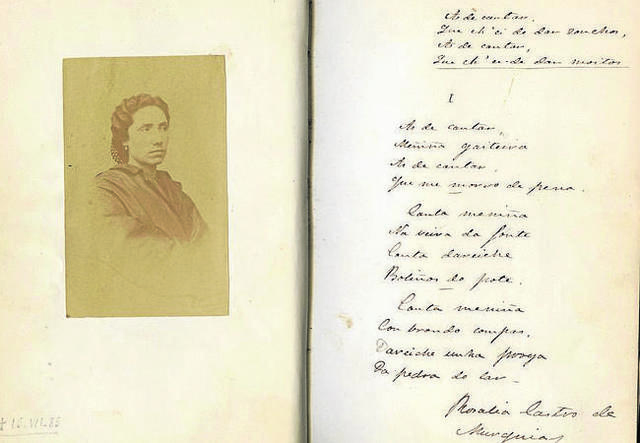 † 15.VII.85
As de cantar,
Que ch'ei de dar zonchos,
As de cantar,
Que ch'ei de dar moitos
I
As de cantar,
Meniña gaiteira
As de cantar,
Que me morro de pena.
Canta meniña
Na veira da fonte
Canta dareiche
Boliños do pote.
Canta meniña
Con brando compas,
Dareiche unha proya
Da pedra do lar_
Rosalia Castro de
Murguia